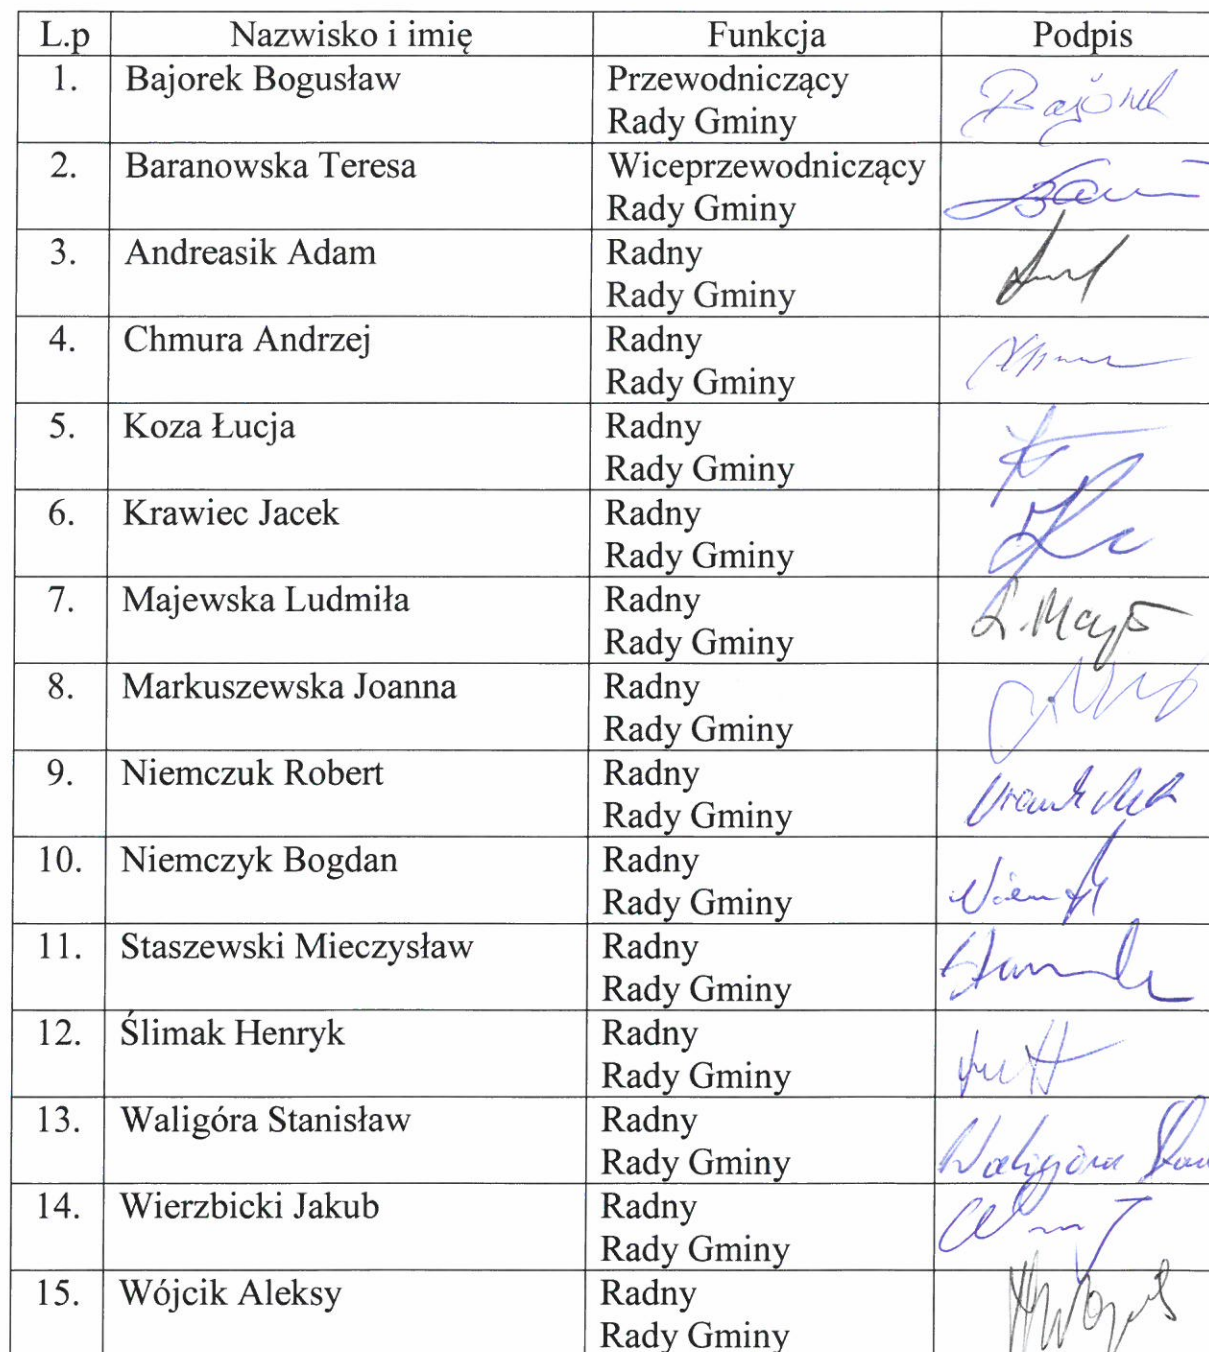 L.p Nazwisko i imię Funkcja Podpis
1. Bajorek Bogusław Przewodniczący
Rady Gminy
2. Baranowska Teresa Wiceprzewodniczący
Rady Gminy
3. Andreasik Adam Radny
Rady Gminy
4. Chmura Andrzej Radny
Rady Gminy
5. Koza Łucja Radny
Rady Gminy
6. Krawiec Jacek Radny
Rady Gminy
7. Majewska Ludmiła Radny
Rady Gminy
8. Markuszewska Joanna Radny
Rady Gminy
9. Niemczuk Robert Radny
Rady Gminy
10. Niemczyk Bogdan Radny
Rady Gminy
11. Staszewski Mieczysław Radny
Rady Gminy
12. Ślimak Henryk Radny
Rady Gminy
13. Waligóra Stanisław Radny
Rady Gminy Waligóra
14. Wierzbicki Jakub Radny
Rady Gminy
15. Wójcik Aleksy Radny
Rady Gminy